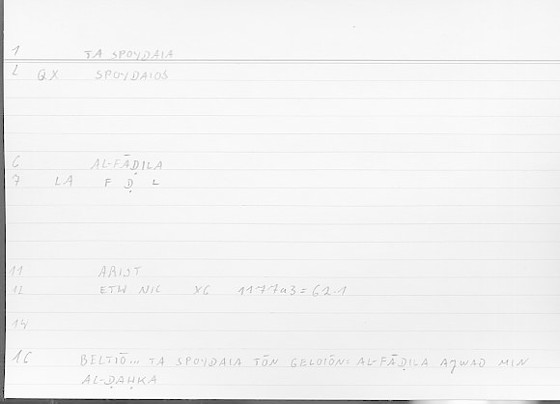 1 TA SPOYDAIA
2 QX SPOYDAIOS
6 AL-FĀḌILA
7 LA F Ḍ L
11 ARIST
12 ETH NIC X6 1177a3=62.1
14
16 BELTIŌ... TA SPOYDAIA TŌN GELOIŌN: AL-FĀḌILA AǦWAD MIN
AL-ḌAḤKA